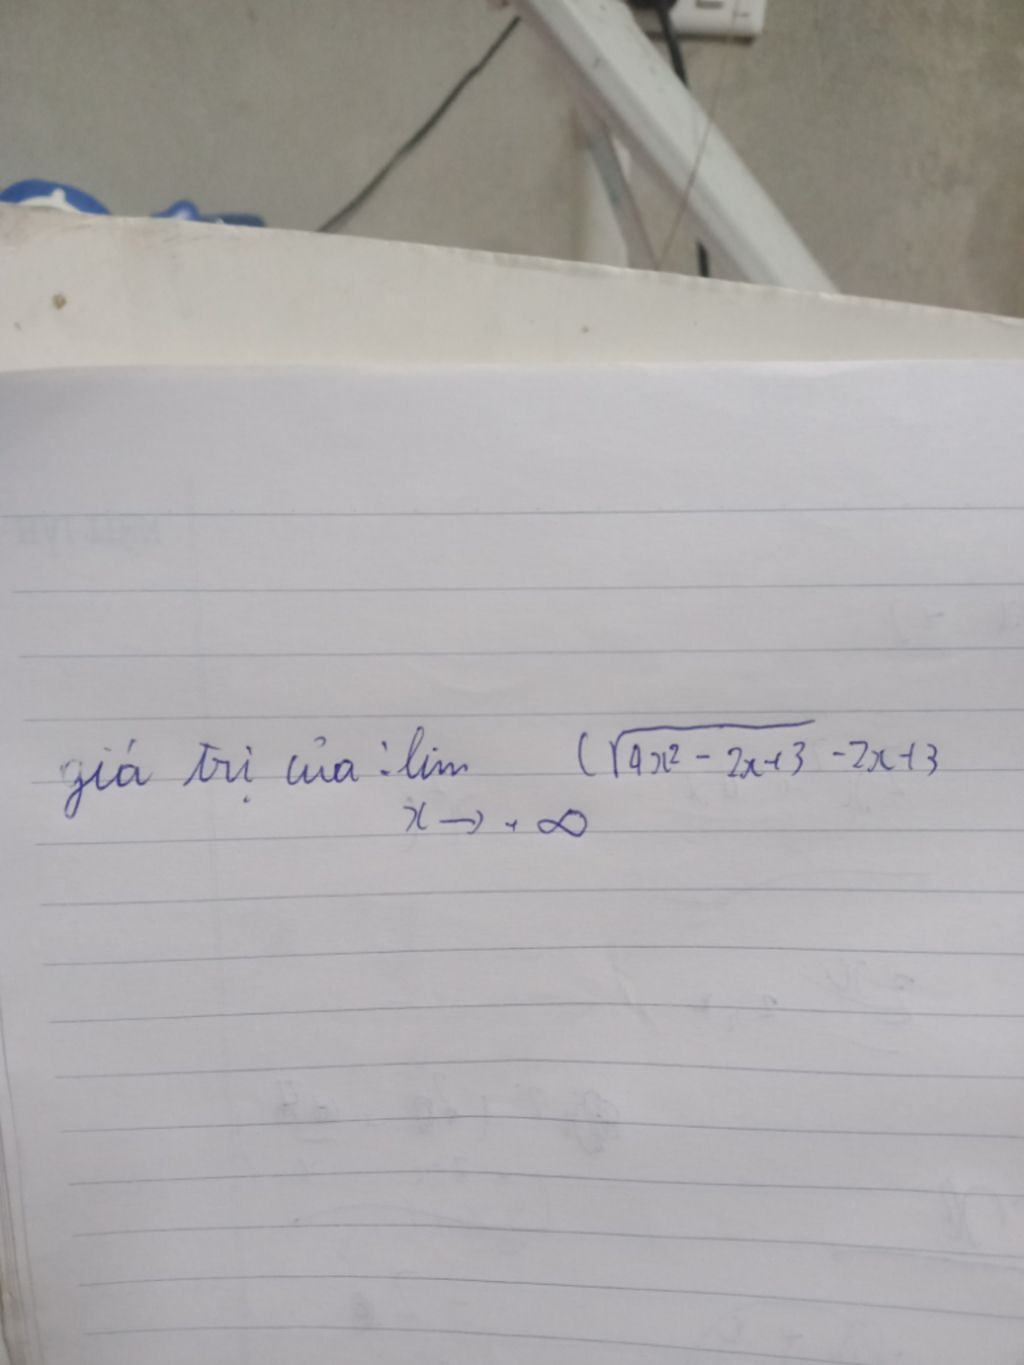 giá trị của : lim (√4x² - 2x+3 - 2x+3
x → + ∞